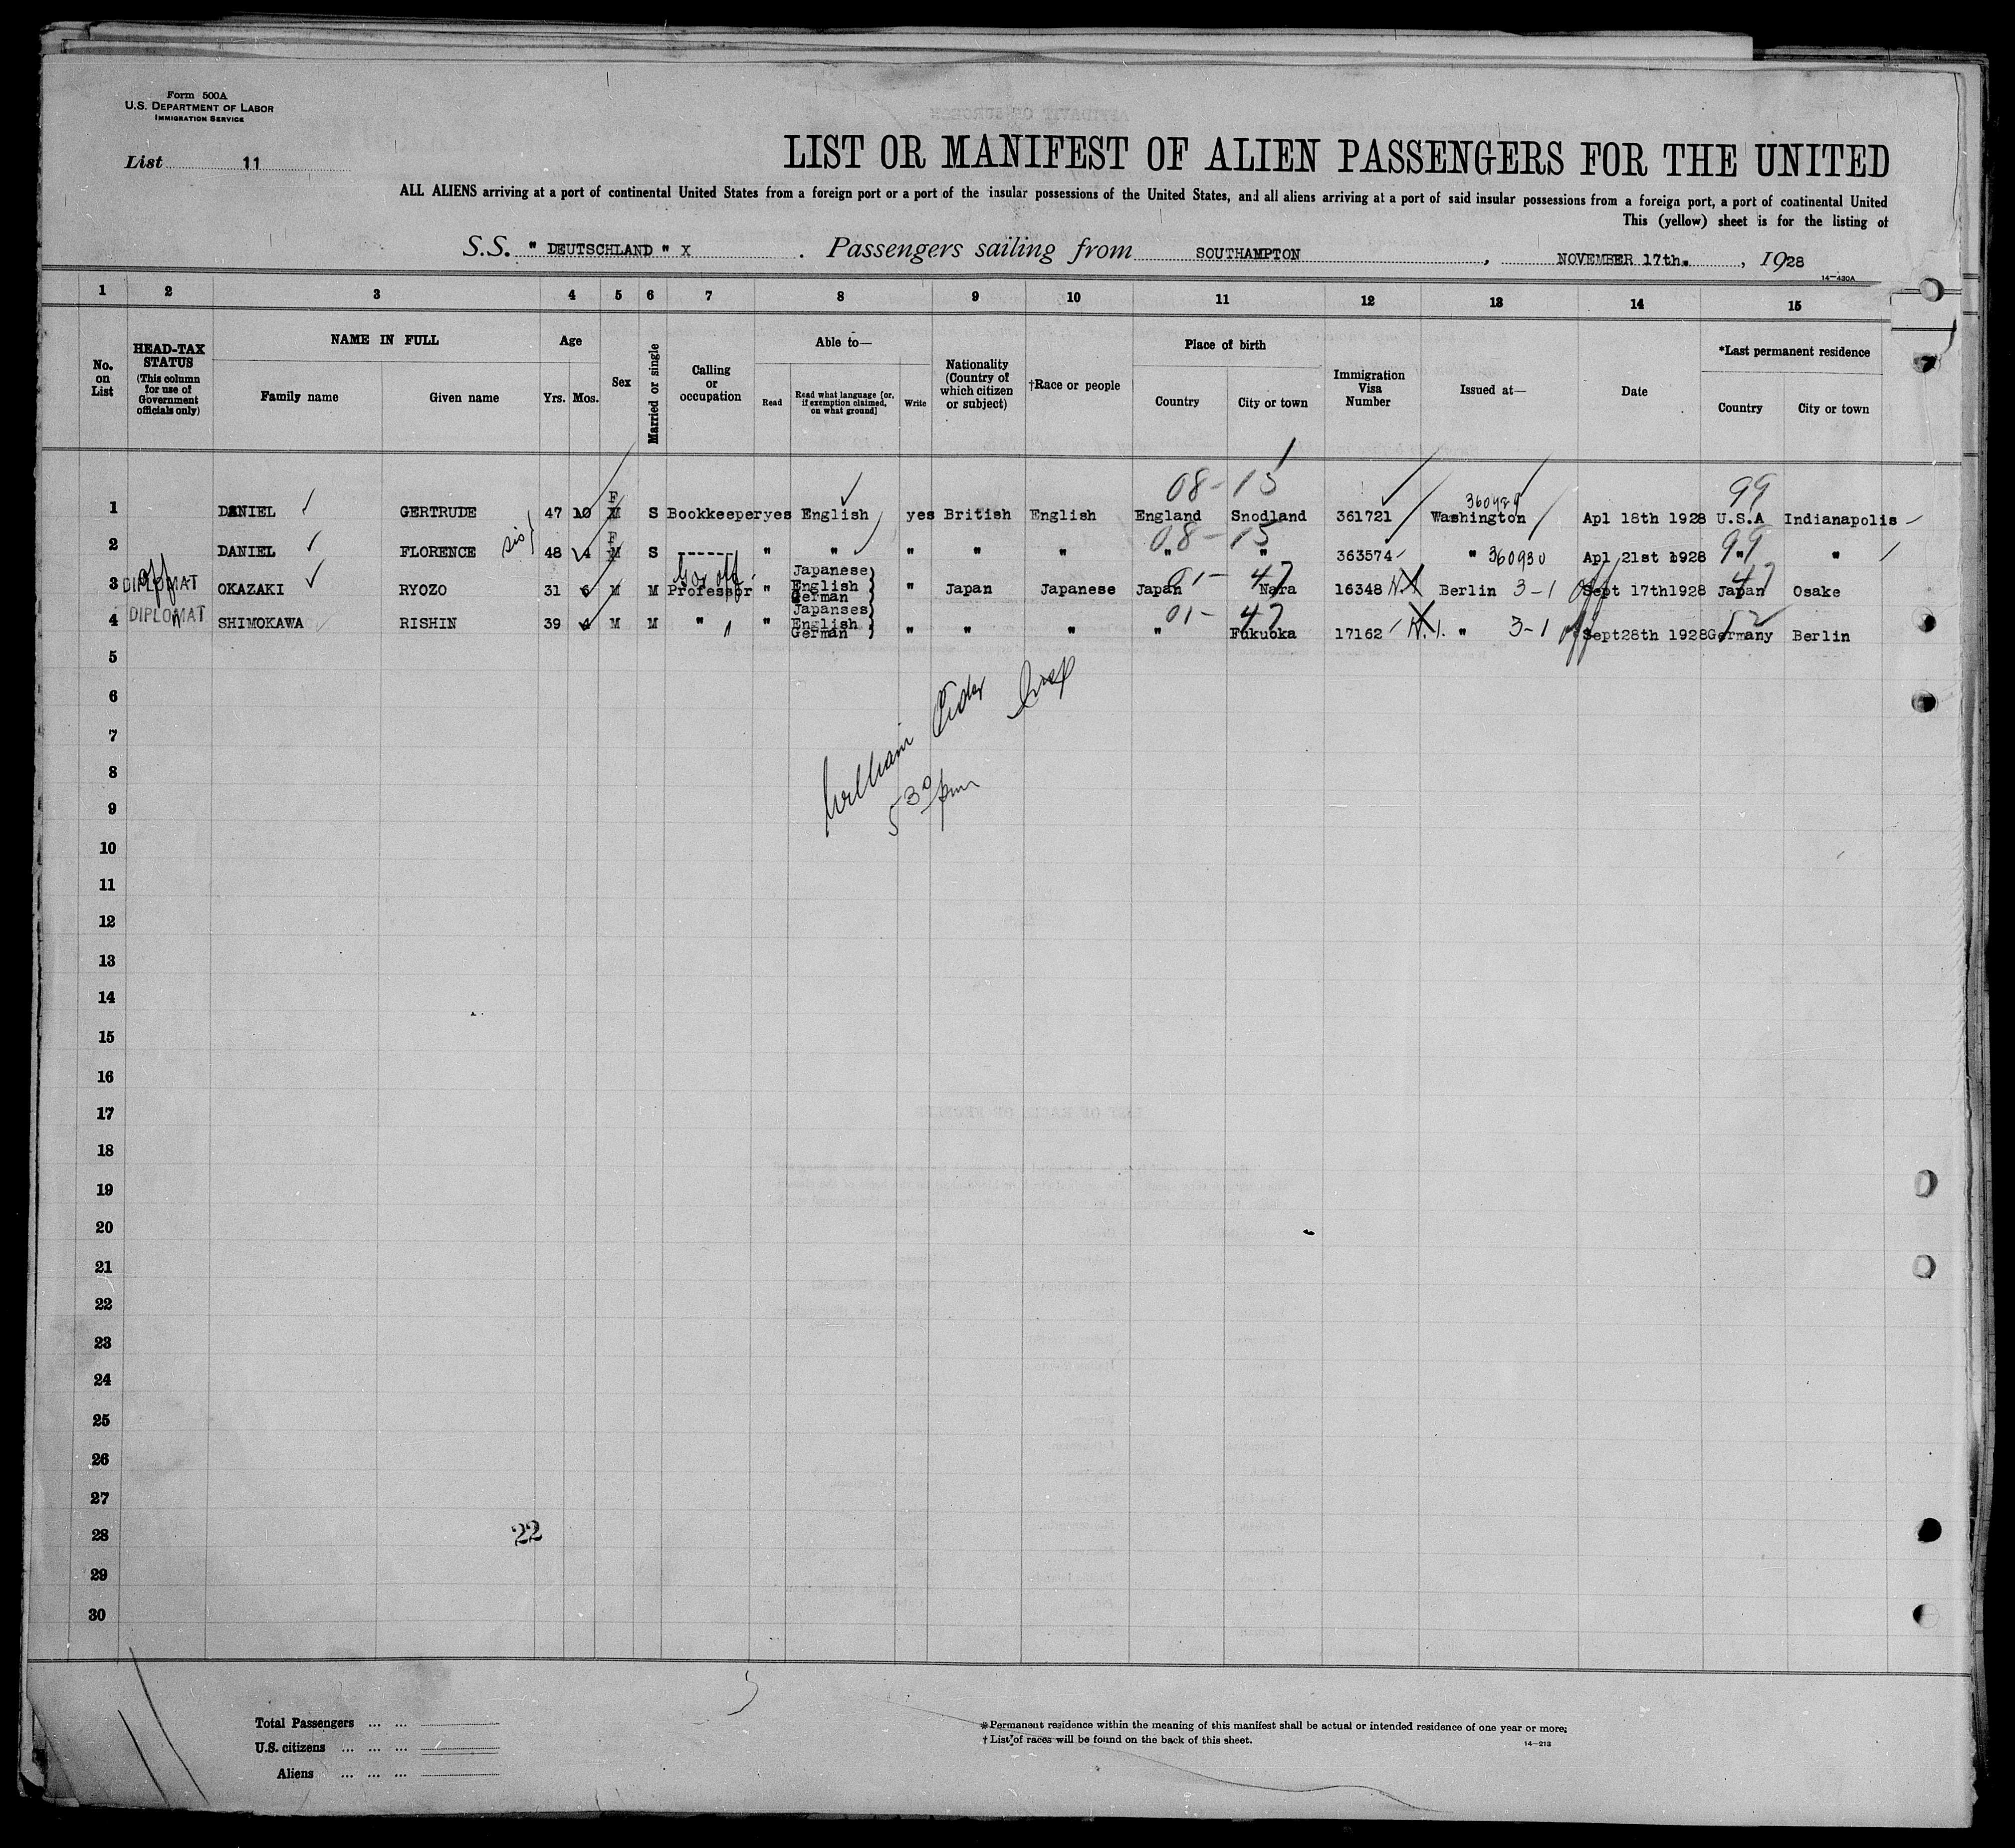 Form 500A
U.S. DEPARTMENT OF LABOR
IMMIGRATION SERVICE
List 11
LIST OR MANIFEST OF ALIEN PASSENGERS FOR THE UNITED
ALL ALIENS arriving at a port of continental United States from a foreign port or a port of the insular possessions of the United States, and all aliens arriving at a port of said insular possessions from a foreign port, a port of continental United
This (yellow) sheet is for the listing of
S.S. " DEUTSCHLAND " X . Passengers sailing from SOUTHAMPTON , NOVEMBER 17th. , 1928
14—430A
1 2 3 4 5 6 7 8 9 10 11 12 13 14 15
No. on List
HEAD-TAX STATUS (This column for use of Government officials only)
NAME IN FULL
Family name Given name
Age
Yrs. Mos.
Sex
Married or single
Calling or occupation
Able to—
Read Read what language [or, if exemption claimed, on what ground] Write
Nationality (Country of which citizen or subject)
†Race or people
Place of birth
Country City or town
Immigration Visa Number
Issued at—
Date
*Last permanent residence
Country City or town
08-15 360929 99
1 DANIEL GERTRUDE 47 10 F M S Bookkeeper yes English yes British English England Snodland 361721 Washington Apl 18th 1928 U.S.A Indianapolis
08-15 99
2 DANIEL FLORENCE sis 48 4 F M S ------ " " " " " " " 363574 " 360930 Apl 21st 1928 " "
Gov off 01- 47 47
3 DIPLOMAT off OKAZAKI RYOZO 31 6 M M Professor " Japanese English German " Japan Japanese Japan Nara 16348 Berlin 3-1 off Sept 17th1928 Japan Osake
01- 47 52
4 DIPLOMAT " SHIMOKAWA RISHIN 39 4 M M " " " Japanses English German " " " " Fukuoka 17162 " 3-1 off Sept28th 1928 Germany Berlin
5
6
7
William
8
9
5 30 pm
10
11
12
13
14
15
16
17
18
19
20
21
22
23
24
25
26
27
28 22
29
30
Total Passengers ... ...
U.S. citizens ... ... ...
Aliens ... ... ...
*Permanent residence within the meaning of this manifest shall be actual or intended residence of one year or more.
† List of races will be found on the back of this sheet.
14—213